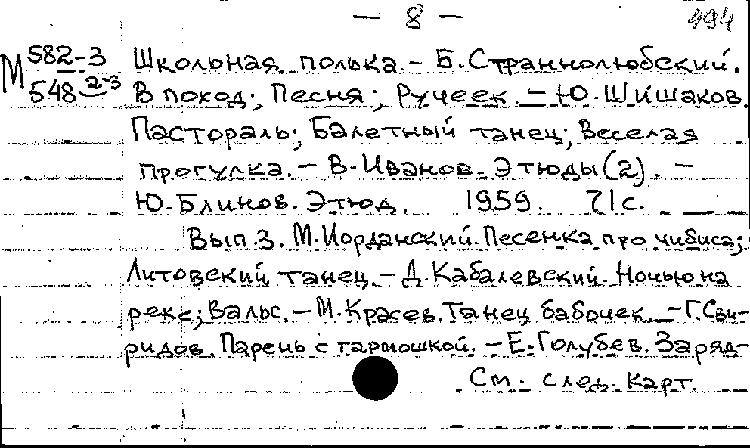 — 8 —
494
М 582-3 Школьная полька. – Б. Страннолюбский.
548 2-3 В поход; Песня; Ручеек. – Ю. Шишаков.
Пастораль; Балетный танец; Веселая
прогулка. – В. Иванов. Этюды (2). –
Ю. Блинов. Этюд. 1959. 71 с.
Вып. 3. М. Иорданский. Песенка про чибиса;
Литовский танец. – Д. Кабалевский. Ночью на
реке; Вальс. – М. Красев. Танец бабочек. – Г. Сви-
ридов. Парень с гармошкой. – Е. Голубев. Заряд-
См. след. карт.